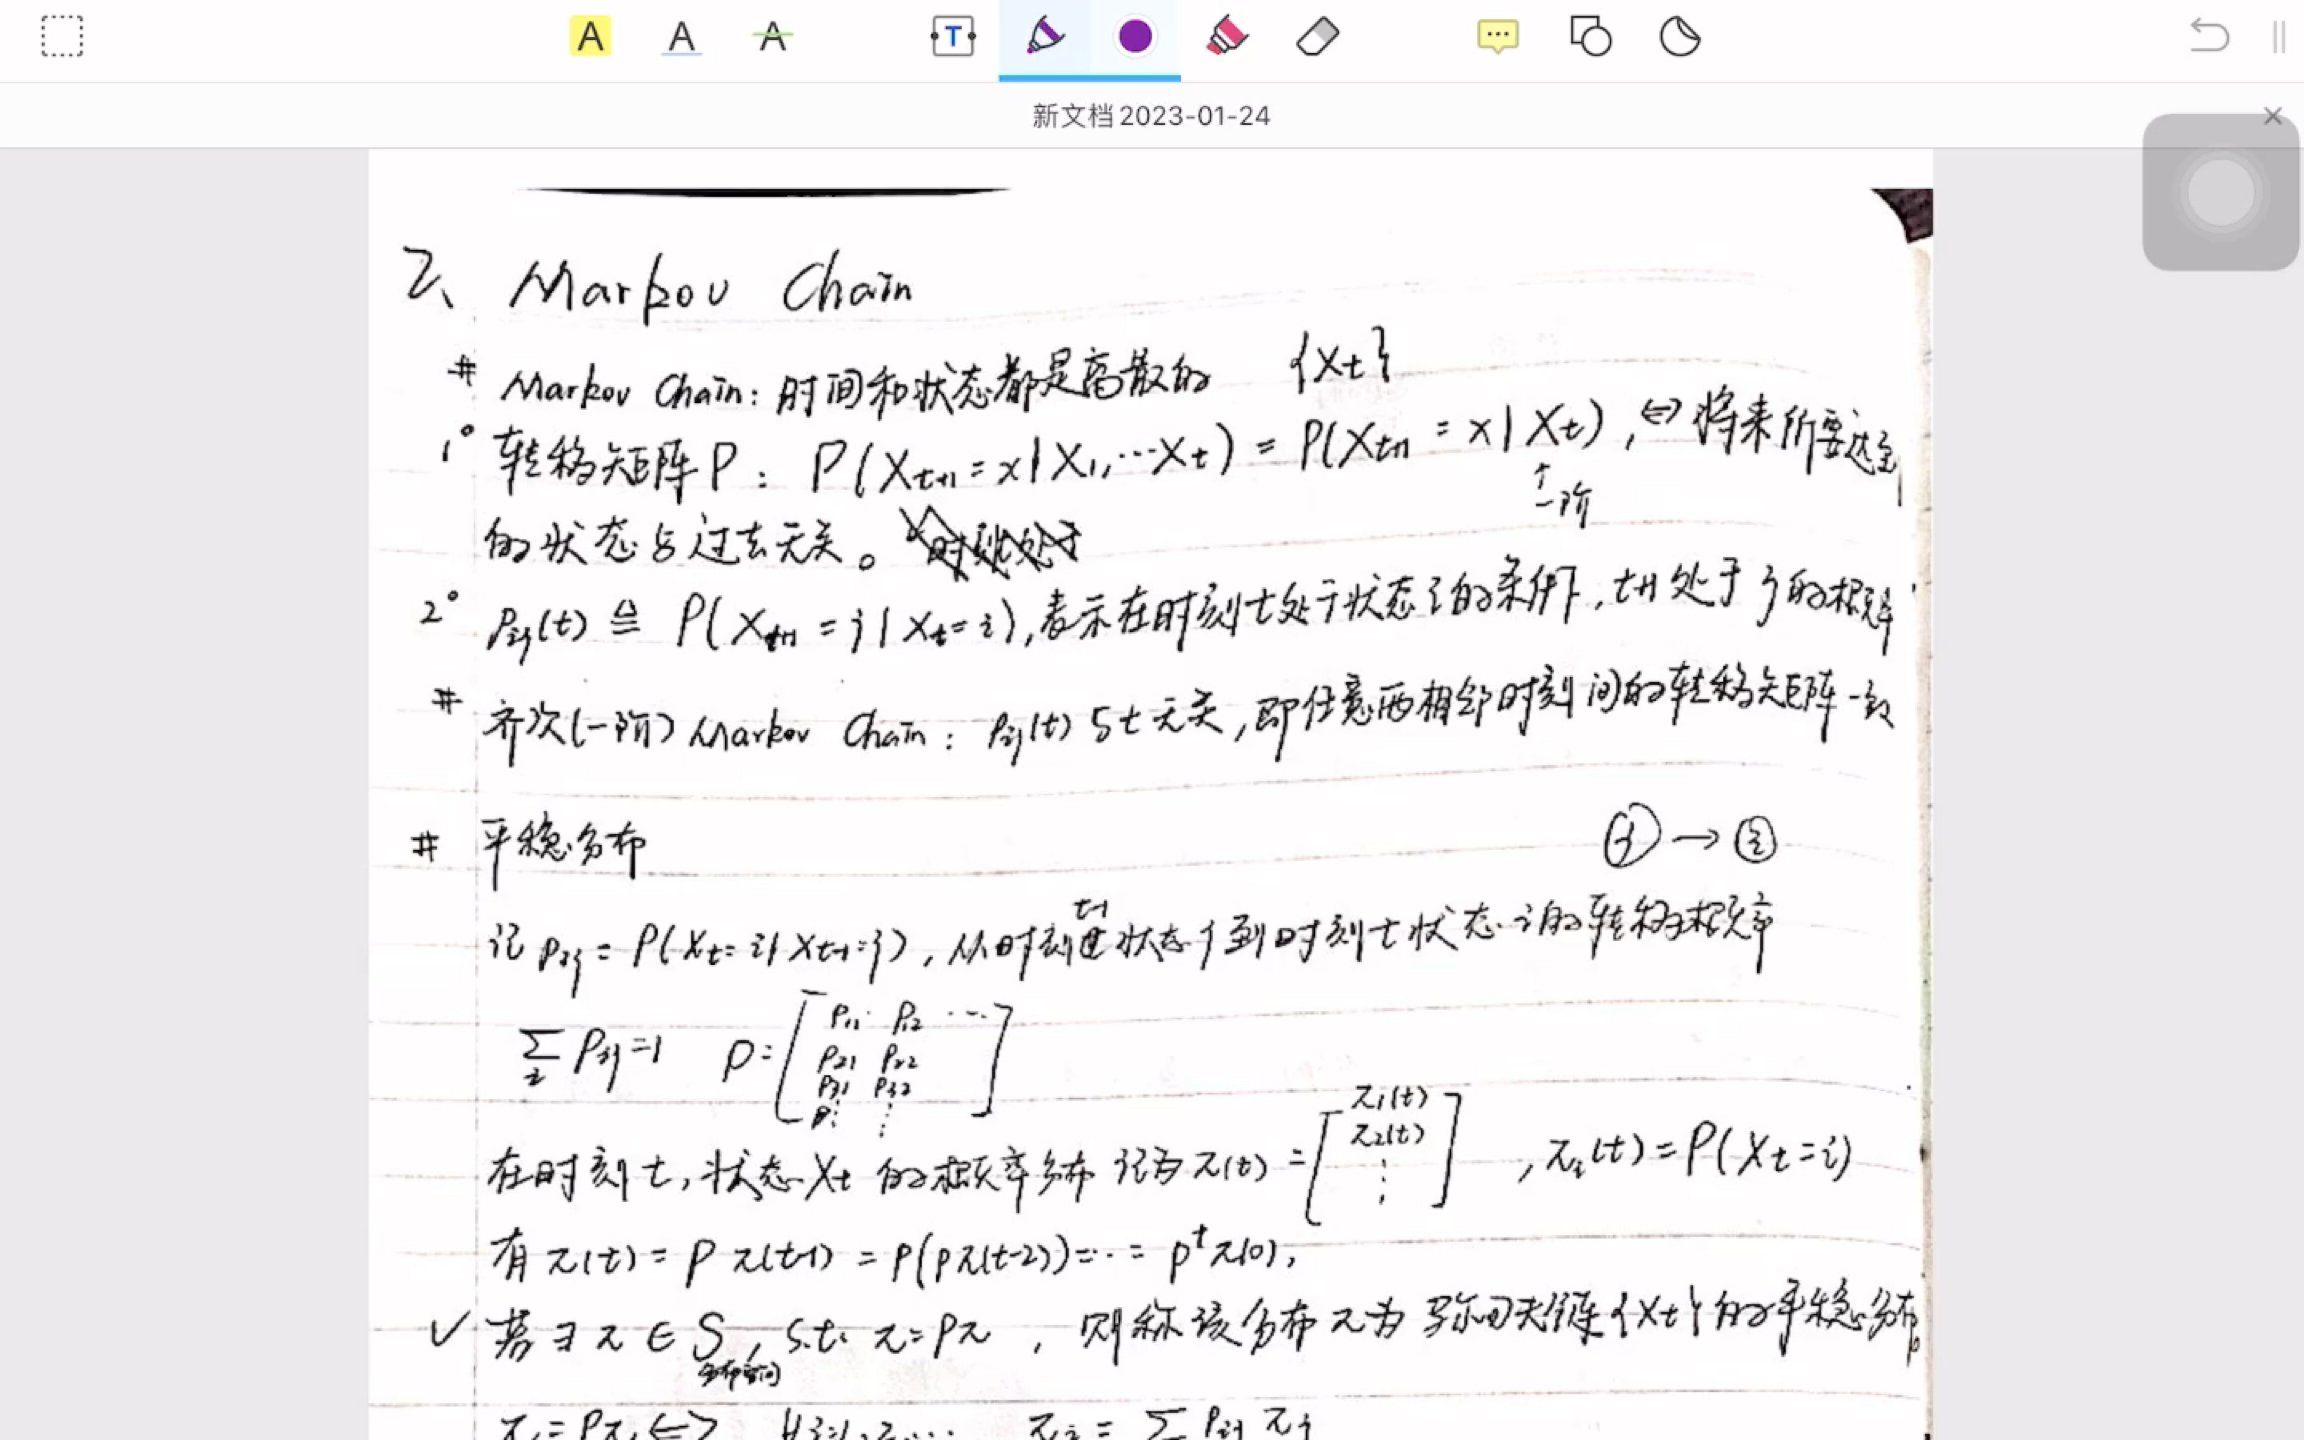 A A A T
新文档2023-01-24
2、 Markov Chain
# Markov Chain: 时间和状态都是离散的 {Xt}
1° 转移矩阵P: P(Xt+1=x|X1,…Xt) = P(Xt+1 = x|Xt), ⇔ 将来所要达到
↑
一阶
的状态与过去无关。
2° Pij(t) ≜ P(Xt+1 = j | Xt=i), 表示在时刻t处于状态i的条件下, t+1处于j的概率
# 齐次(一阶) Markov Chain: Pij(t) 与t无关, 即任意两相邻时刻间的转移矩阵一致
# 平稳分布 ⓙ → ⓘ
记 Pij = P(Xt=i| Xt-1=j), 从时刻t-1状态j到时刻t状态i的转移概率
∑i Pij=1 P=[P11 P12 …
P21 P22
P31 P32
⋮ ⋮]
在时刻t, 状态Xt 的概率分布记为π(t) = [π1(t)
π2(t)
⋮] , πi(t)=P(Xt=i)
有π(t) = Pπ(t-1) = P(Pπ(t-2))=…= P^t π(0),
✓ 若∃ π ∈ S, s.t. π=Pπ, 则称该分布π为马尔可夫链{Xt}的平稳分布
分布空间
π=Pπ ⇔ ∀i=1,2,… πi = ∑ Pij πj